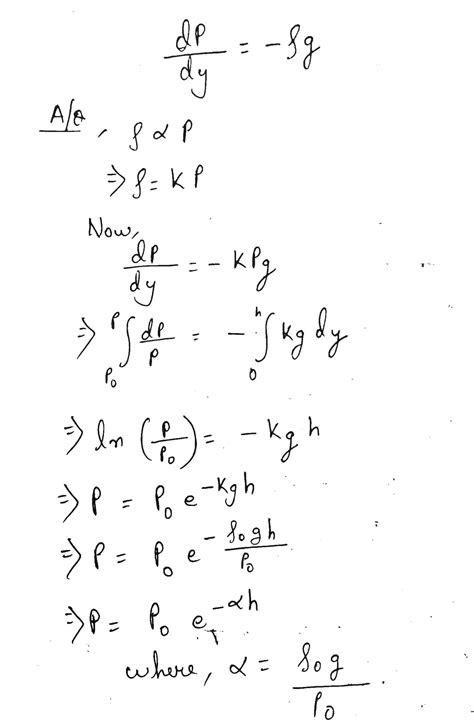 dP/dy = -ρg
A/Q, ρ ∝ P
⇒ ρ = KP
Now,
dP/dy = - KPg
⇒ ∫_{P₀}^{P} dP/P = - ∫_{0}^{h} Kg dy
⇒ ln (P/P₀) = - Kgh
⇒ P = P₀ e^{-Kgh}
⇒ P = P₀ e^{-ρ₀gh/P₀}
⇒ P = P₀ e^{-αh}
where, α = ρ₀g/P₀.